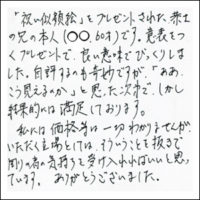 「祝い似顔絵」をプレゼントされた、弟士
の兄の本人(〇〇、60才)です。意表をつ
くプレゼントで、良い意味でびっくりしま
した。自評するのも奇妙ですが「ああ、
こう見えるのか〜」と思った次第で、しかし
結果的には満足しております。
私には価格等は一切わかりませんが、
いただく立場としては、そういうことを抜きで
周りの者の気持ちを受け入れればいいと思っ
ています。ありがとうございました。